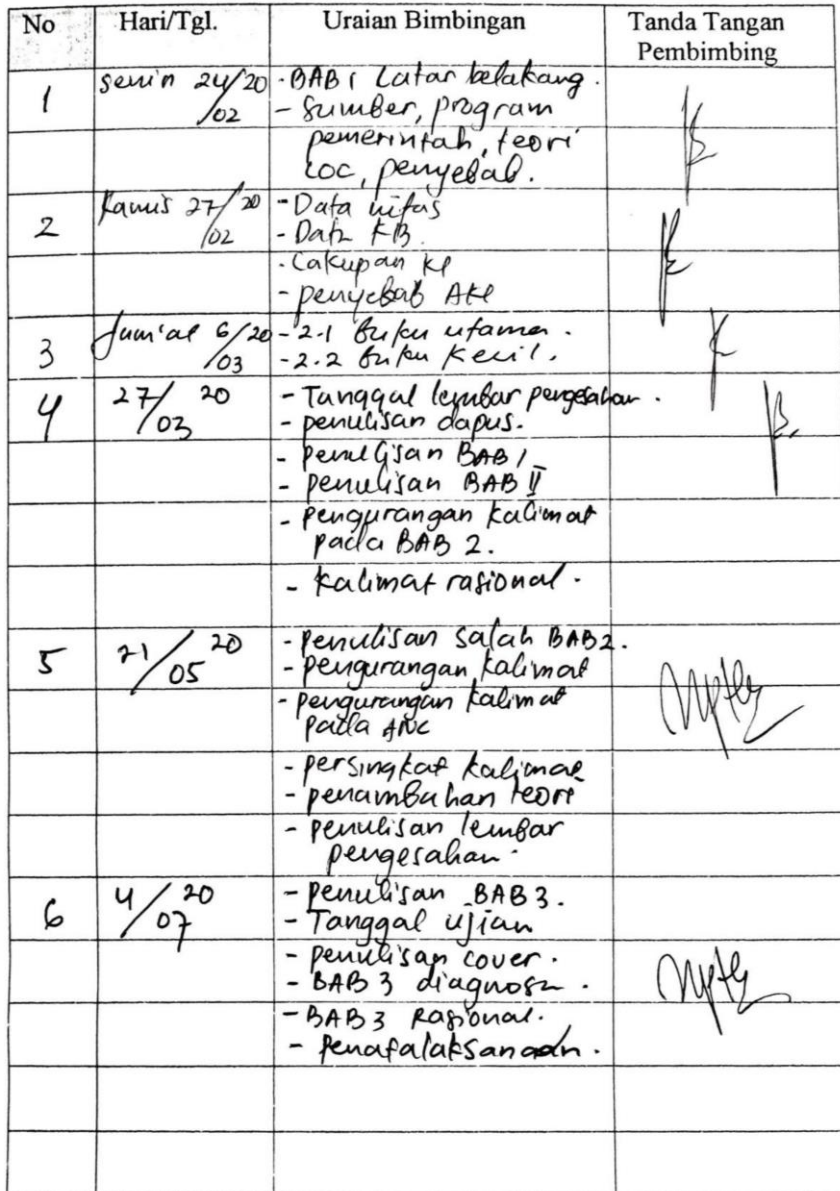 No Hari/Tgl. Uraian Bimbingan Tanda Tangan Pembimbing
1 Senin 24/02 20 - BAB 1 Latar belakang.
- Sumber, program
pemerintah, teori
COC, penyebab.
2 Kamis 27/02 20 - Data nifas
- Data KB.
- Cakupan
- penyebab
3 Jum'at 6/03 20 - 2.1 Buku utama.
- 2.2 Buku Kecil.
4 27/03 20 - Tanggal lembar pengesahan.
- penulisan dapus.
- penulisan BAB 1
- penulisan BAB II
- pengurangan kalimat
pada BAB 2.
- kalimat rasional.
5 21/05 20 - penulisan salah BAB 2.
- pengurangan kalimat
- pengurangan kalimat
pada ANC
- persingkat kalimat
- penambahan teori
- penulisan lembar
pengesahan.
6 4/07 20 - penulisan BAB 3.
- Tanggal ujian
- penulisan cover.
- BAB 3 diagnosa.
- BAB 3 Rasional.
- Penatalaksanaan.